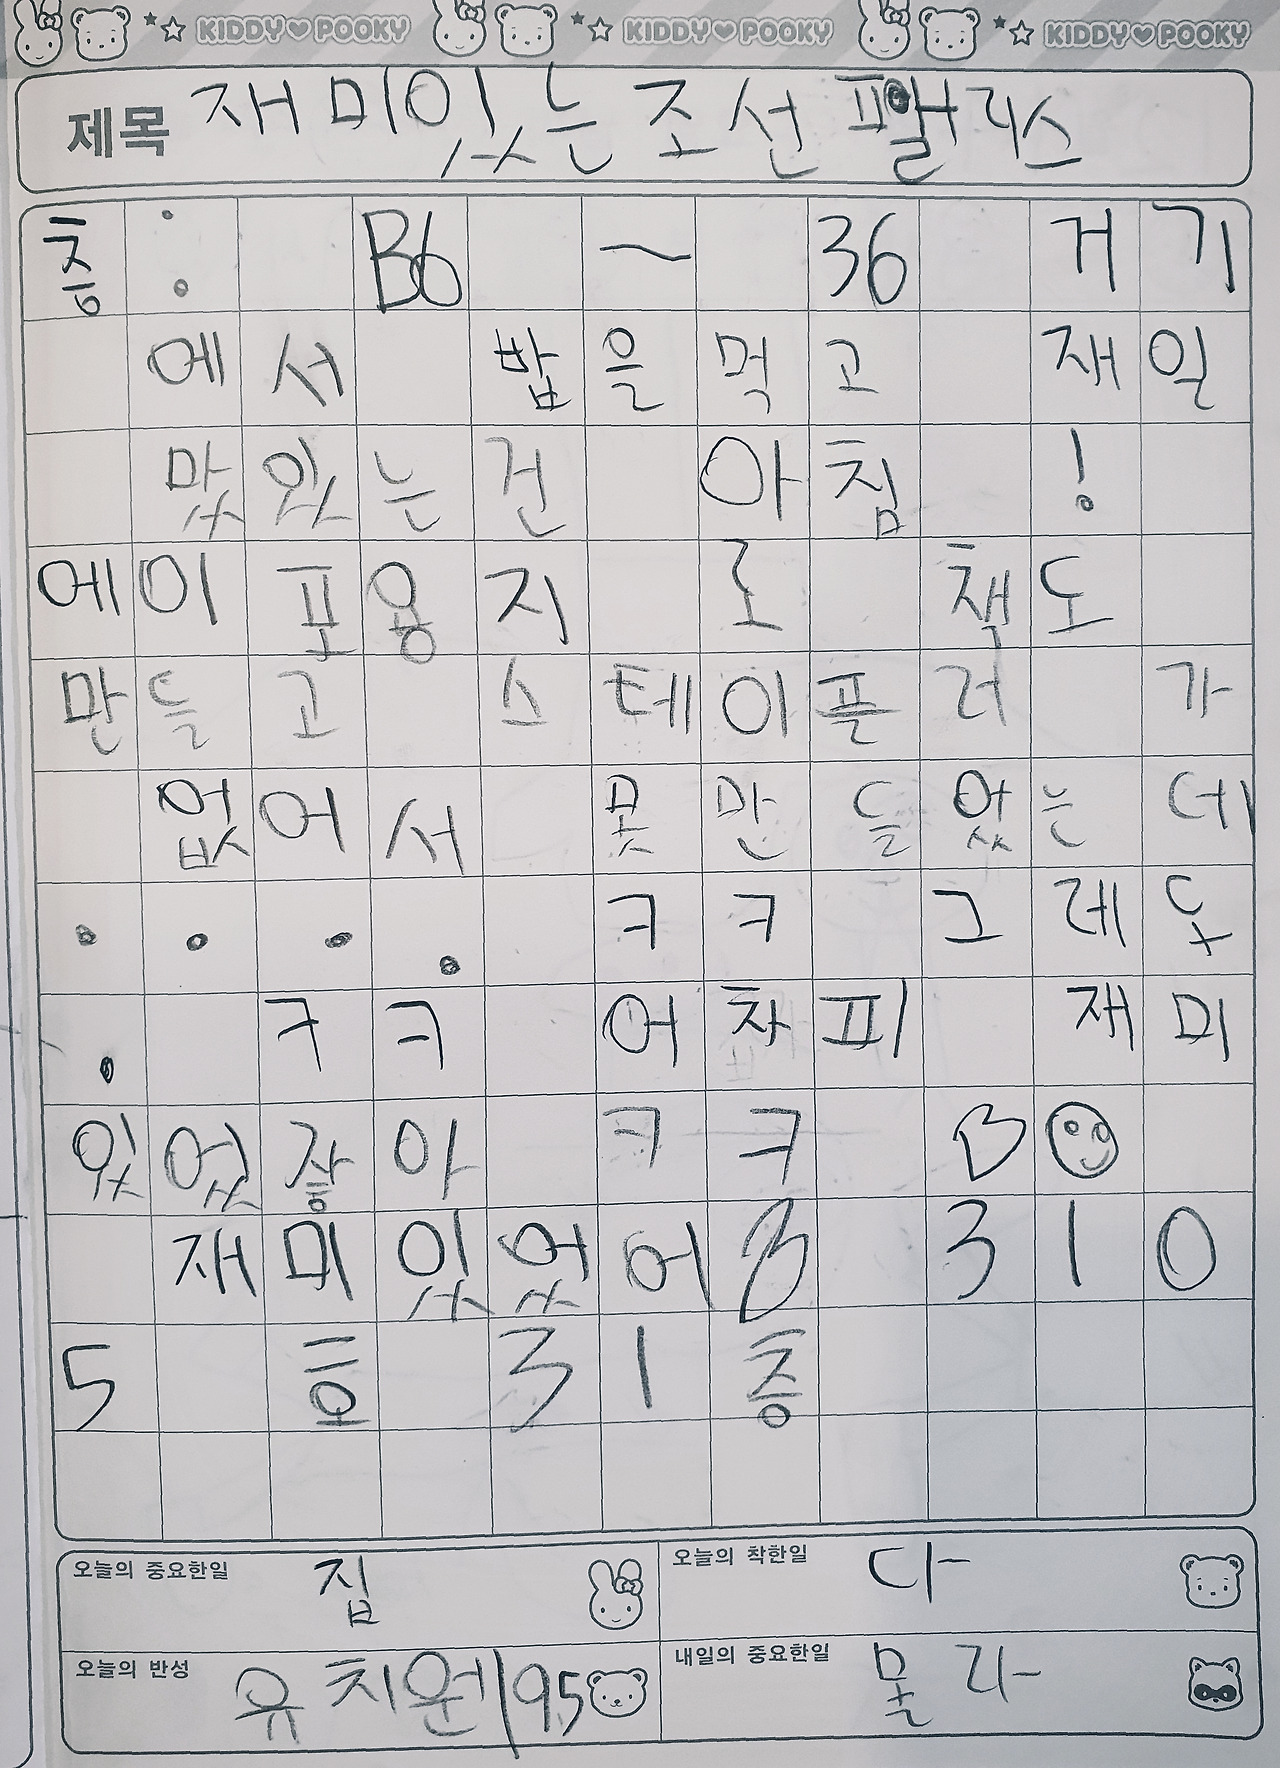 KIDDY♥POOKY KIDDY♥POOKY KIDDY♥POOKY
제목 재미있는 조선 팰리스
층 : B6 ~ 36 거기
에서 밥을 먹고 재일
맛있는건 아침 !
에이포용지 로 책도
만들고 스테이플러 가
없어서 못만들었는데
.... ㅋㅋ 그레도
. ㅋㅋ 어차피 재미
있었잖아 ㅋㅋ B☺
재미있었어B 310
5 호 31층
오늘의 중요한일 집
오늘의 착한일 다
오늘의 반성 유치원 195
내일의 중요한일 몰라